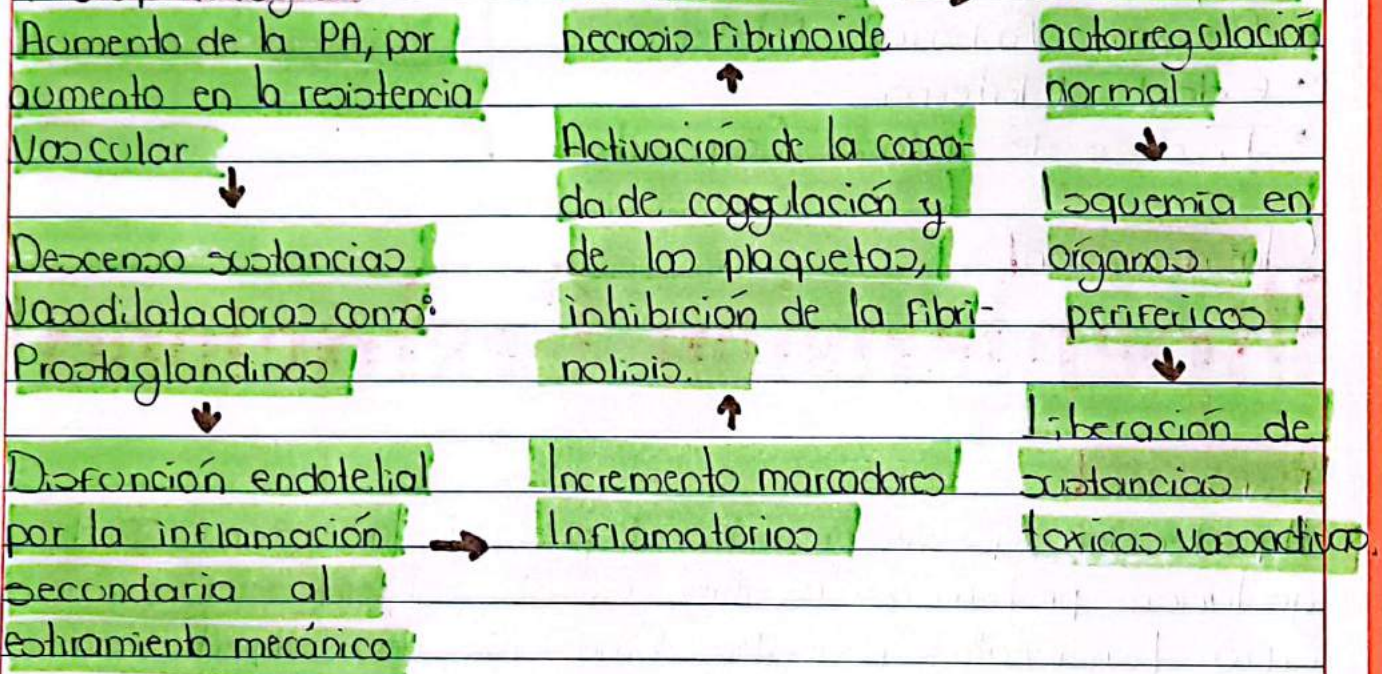 Aumento de la PA, por
aumento en la resistencia
Vascular
Descenso sustancias
Vasodilatadoras como:
Prostaglandinas
Disfunción endotelial
por la inflamación
secundaria al
estiramiento mecánico
necrosis Fibrinoide
Activación de la casca-
da de coggulación y
de las plaquetas,
inhibición de la Fibri-
nolisis.
Incremento marcadores
Inflamatorios
autorregulación
normal
Isquemia en
órganos
perifericos
Liberación de
sustancias
toxicas vasoactivas.